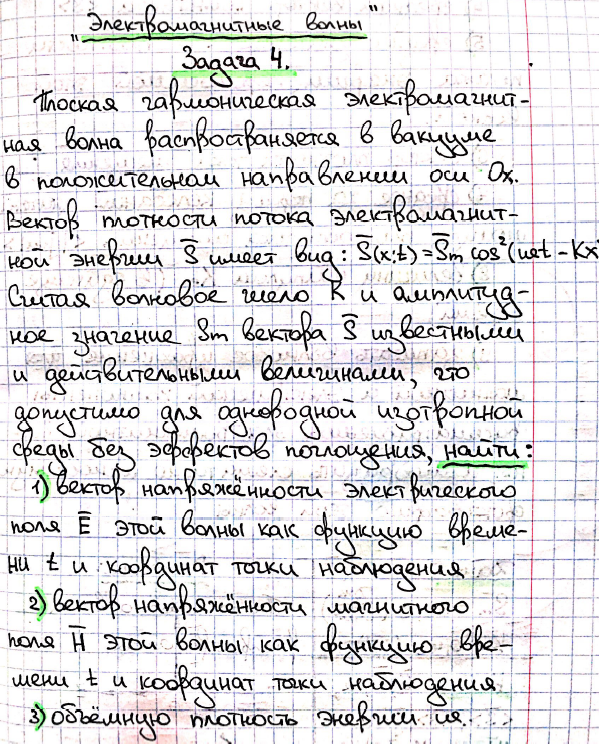 "Электромагнитные волны"
Задача 4.
Плоская гармоническая электромагнит-
ная волна распространяется в вакууме
в положительном направлении оси Ox.
Вектор плотности потока электромагнит-
ной энергии S̄ имеет вид: S̄(x;t)=S̄m cos²(ωt - Kx
Считая волновое число K и амплитуд-
ное значение Sm вектора S̄ известными
и действительными величинами, что
допустимо для однородной изотропной
среды без эффектов поглощения, найти:
1) вектор напряжённости электрического
поля Ē этой волны как функцию време-
ни t и координат точки наблюдения
2) вектор напряжённости магнитного
поля H̄ этой волны как функцию вре-
мени t и координат точки наблюдения
3) объёмную плотность энергии